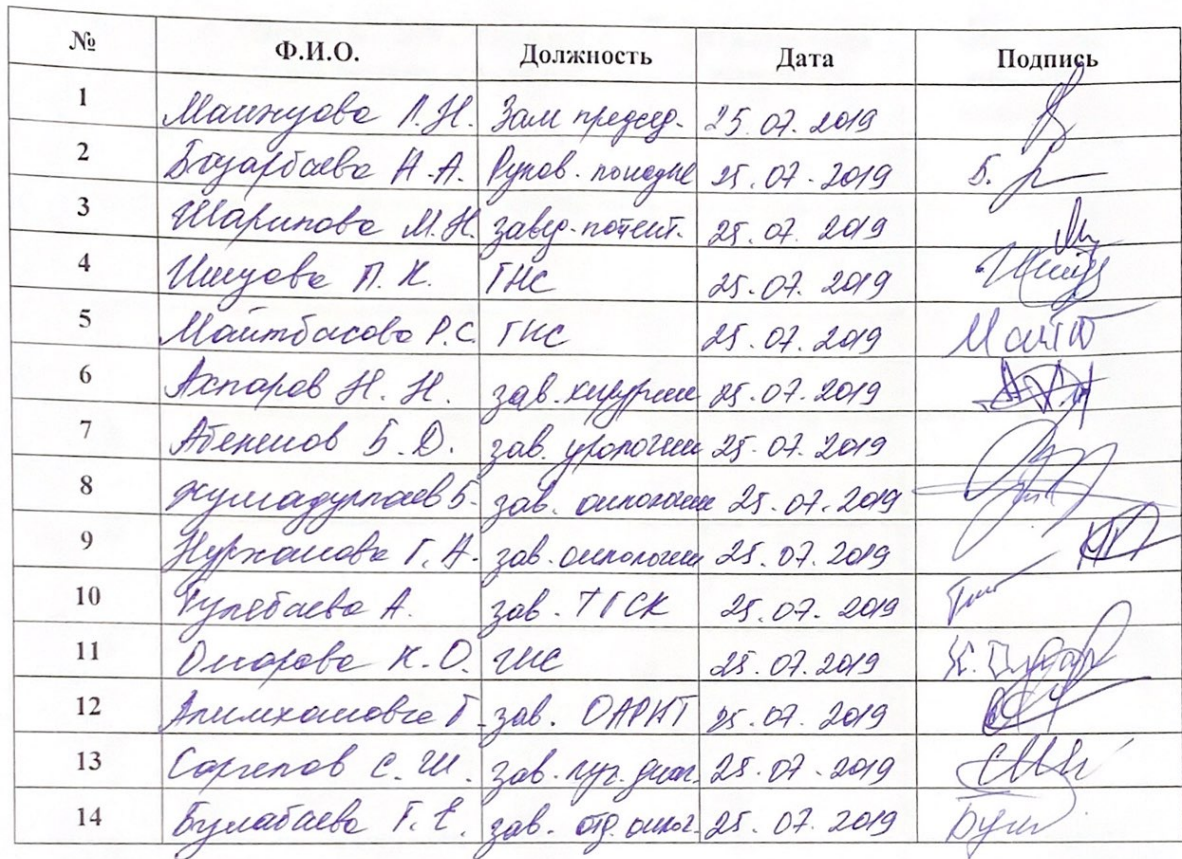 № Ф.И.О. Должность Дата Подпись
1 Манжуова Л.Н. Зам председ. 25.07.2019
2 Базарбаева А.А. Руков. 25.07.2019 Б.
3 Шарипова М.Н. завед. патент. 25.07.2019
4 Ишуова П.К. ГНС 25.07.2019
5 Майтбасова Р.С. ГНС 25.07.2019 Майтб
6 Ахпаров Н.Н. зав. хирургии 25.07.2019
7 Абекенов Б.Д. зав. урологии 25.07.2019
8 Жумадуллаев Б. зав. онкологии 25.07.2019
9 Нуржанова Г.А. зав. онкологии 25.07.2019
10 Кулебаева А. зав. ТГСК 25.07.2019
11 Омарова К.О. гнс 25.07.2019 К. Омар
12 Алимханова Г. зав. ОАРИТ 25.07.2019
13 Сарсенов С.Ш. зав. луч. диаг. 25.07.2019
14 Булабаева Г.Е. зав. отд. онкол. 25.07.2019 Була